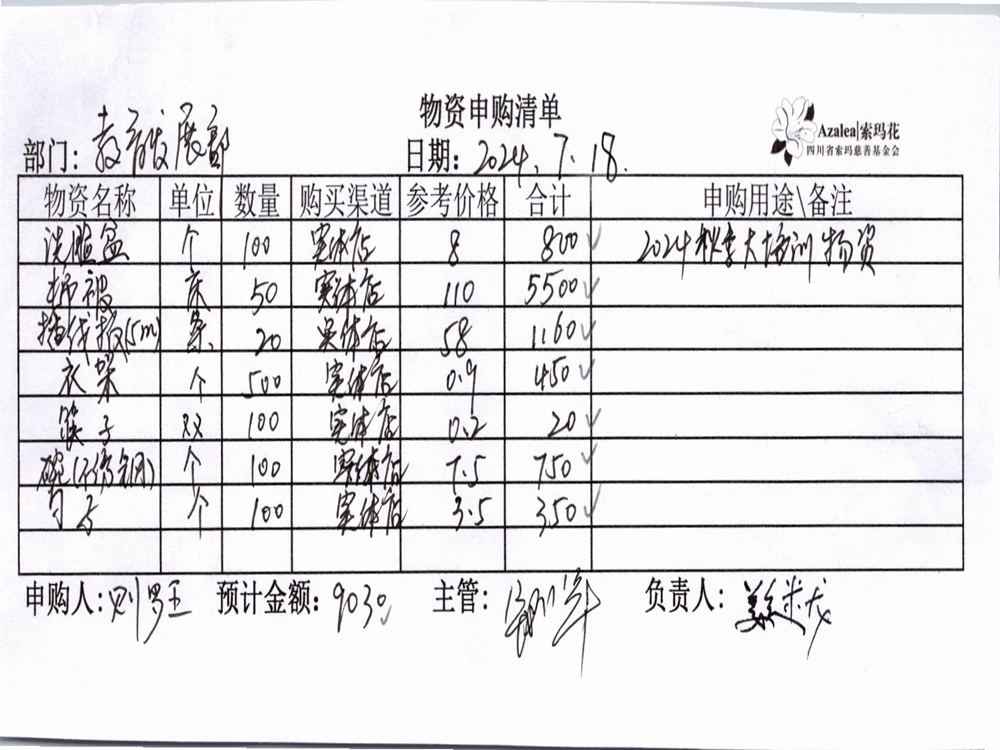 物资申购清单
Azalea|索玛花
四川省索玛慈善基金会
部门：教育发展部 日期：2024.7.18.
物资名称 单位 数量 购买渠道 参考价格 合计 申购用途\备注
洗脸盆 个 100 实体店 8 800 2024秋季大培训物资
棉被 床 50 实体店 110 5500
插线板(5m) 条 20 实体店 58 1160
衣架 个 500 实体店 0.9 450
筷子 双 100 实体店 0.2 20
碗(不锈钢) 个 100 实体店 7.5 750
勺子 个 100 实体店 3.5 350
申购人： 预计金额：9030 主管： 负责人：姜米龙